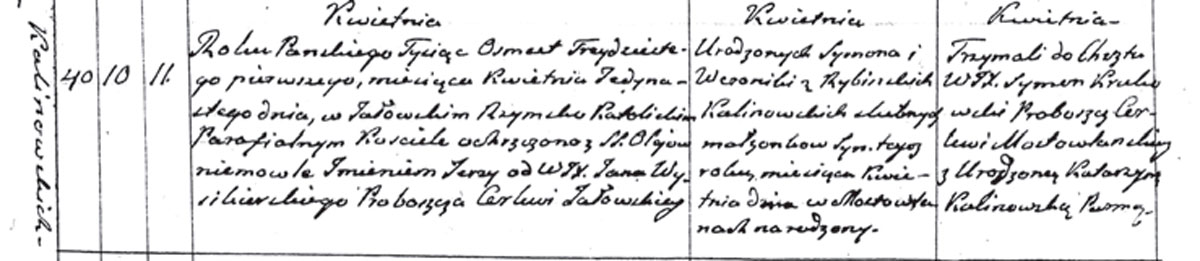 Kalinowskich-
40 10 11.
Kwietnia
Roku Panskiego Tysiąc Osmset Trzydzieste-
go pierwszego, miesiąca Kwietnia Jedyna-
stego dnia, w Jałowskim Rzymsko Katolickim
Parafialnym Kosciele ochrzczono z SS. Olejow
niemowle Imieniem Jerzy od WJX. Jana Wy-
Proboszcza Cerkwi Jałowskiey
Kwietnia
Urodzonych Symona i
Weroniki z Rybinskich
Kalinowskich slubnych
małzonkow Syn, tegoz
roku, miesiąca Kwie-
tnia dnia w Mostowla-
nach narodzony.
Kwietnia-
Trzymali do Chrztu
WJX. Symon
Proboszcz Cer-
kwi Mostowlanskiey
z Urodzoną Katarzyną
Kalinowską